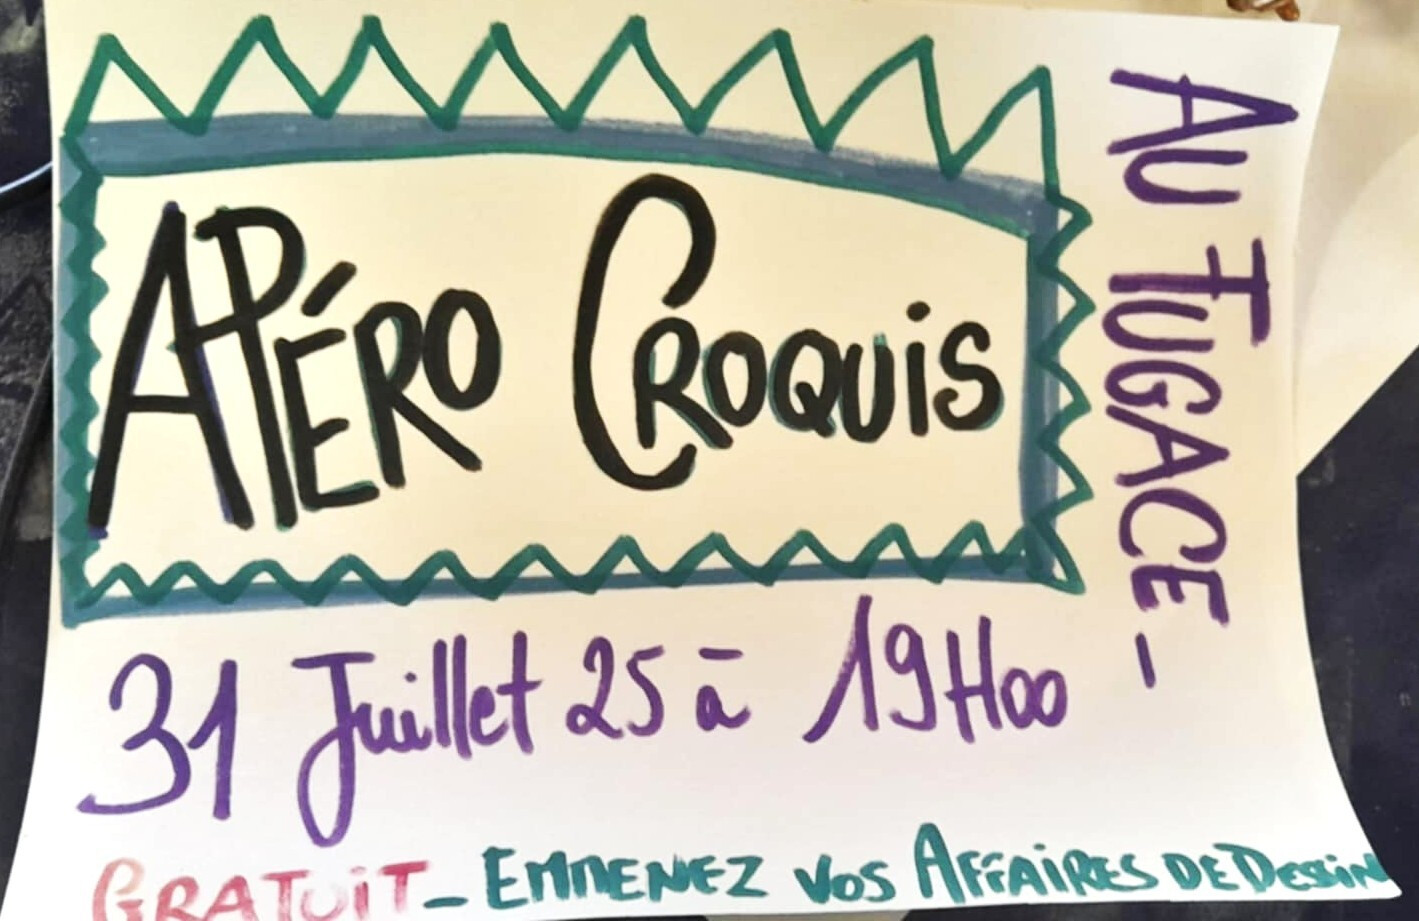 APÉRO CROQUIS
AU FUGACE -
31 Juillet 25 à 19H00
GRATUIT - EMMENEZ VOS AFFAIRES DE DESSIN